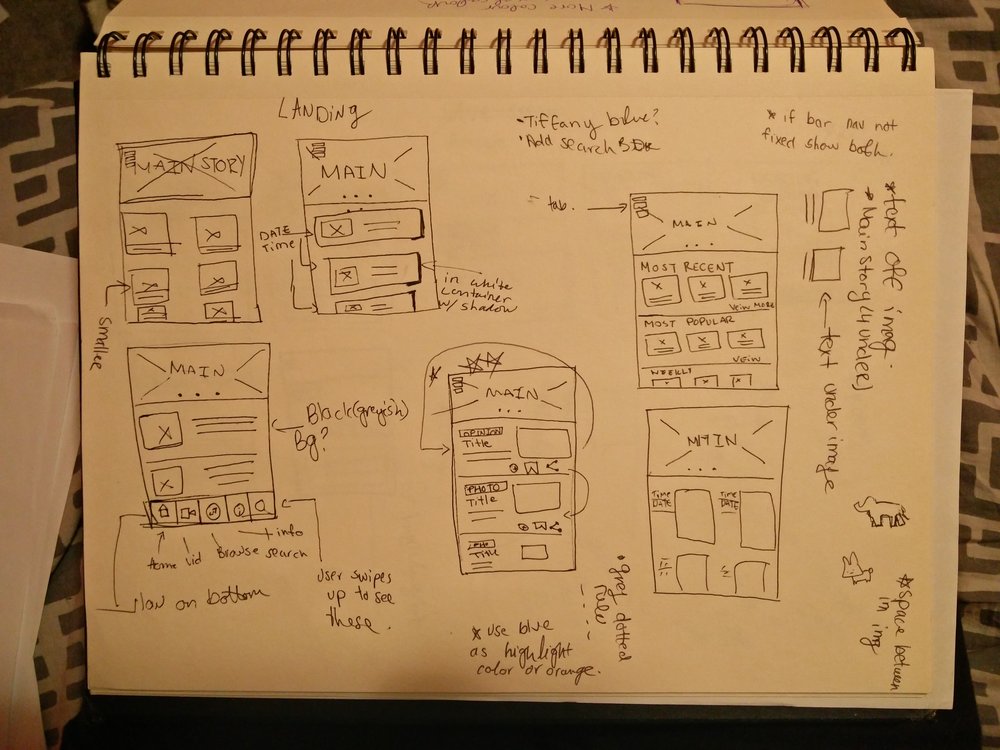 * More colour
LANDING
MAIN STORY
smaller
MAIN
DATE
Time
in white
container
w/ shadow
• Tiffany blue?
• Add search
* if bar nav not
fixed show both.
- tab.
MAIN
MOST RECENT
VEIW MORE
MOST POPULAR
VEIW
WEEKLY
* text off imag.
* Main Story (4 under)
text under image
MAIN
Black (greyish)
Bg?
Home
vid
Browse
search
+ info
Nav on bottom
User swipes
up to see
these.
MAIN
OPINION
Title
PHOTO
Title
PHO
Title
* use blue
as highlight
color or orange.
• grey dotted
rule
MAIN
Time
DATE
Time
DATE
* space between
in img